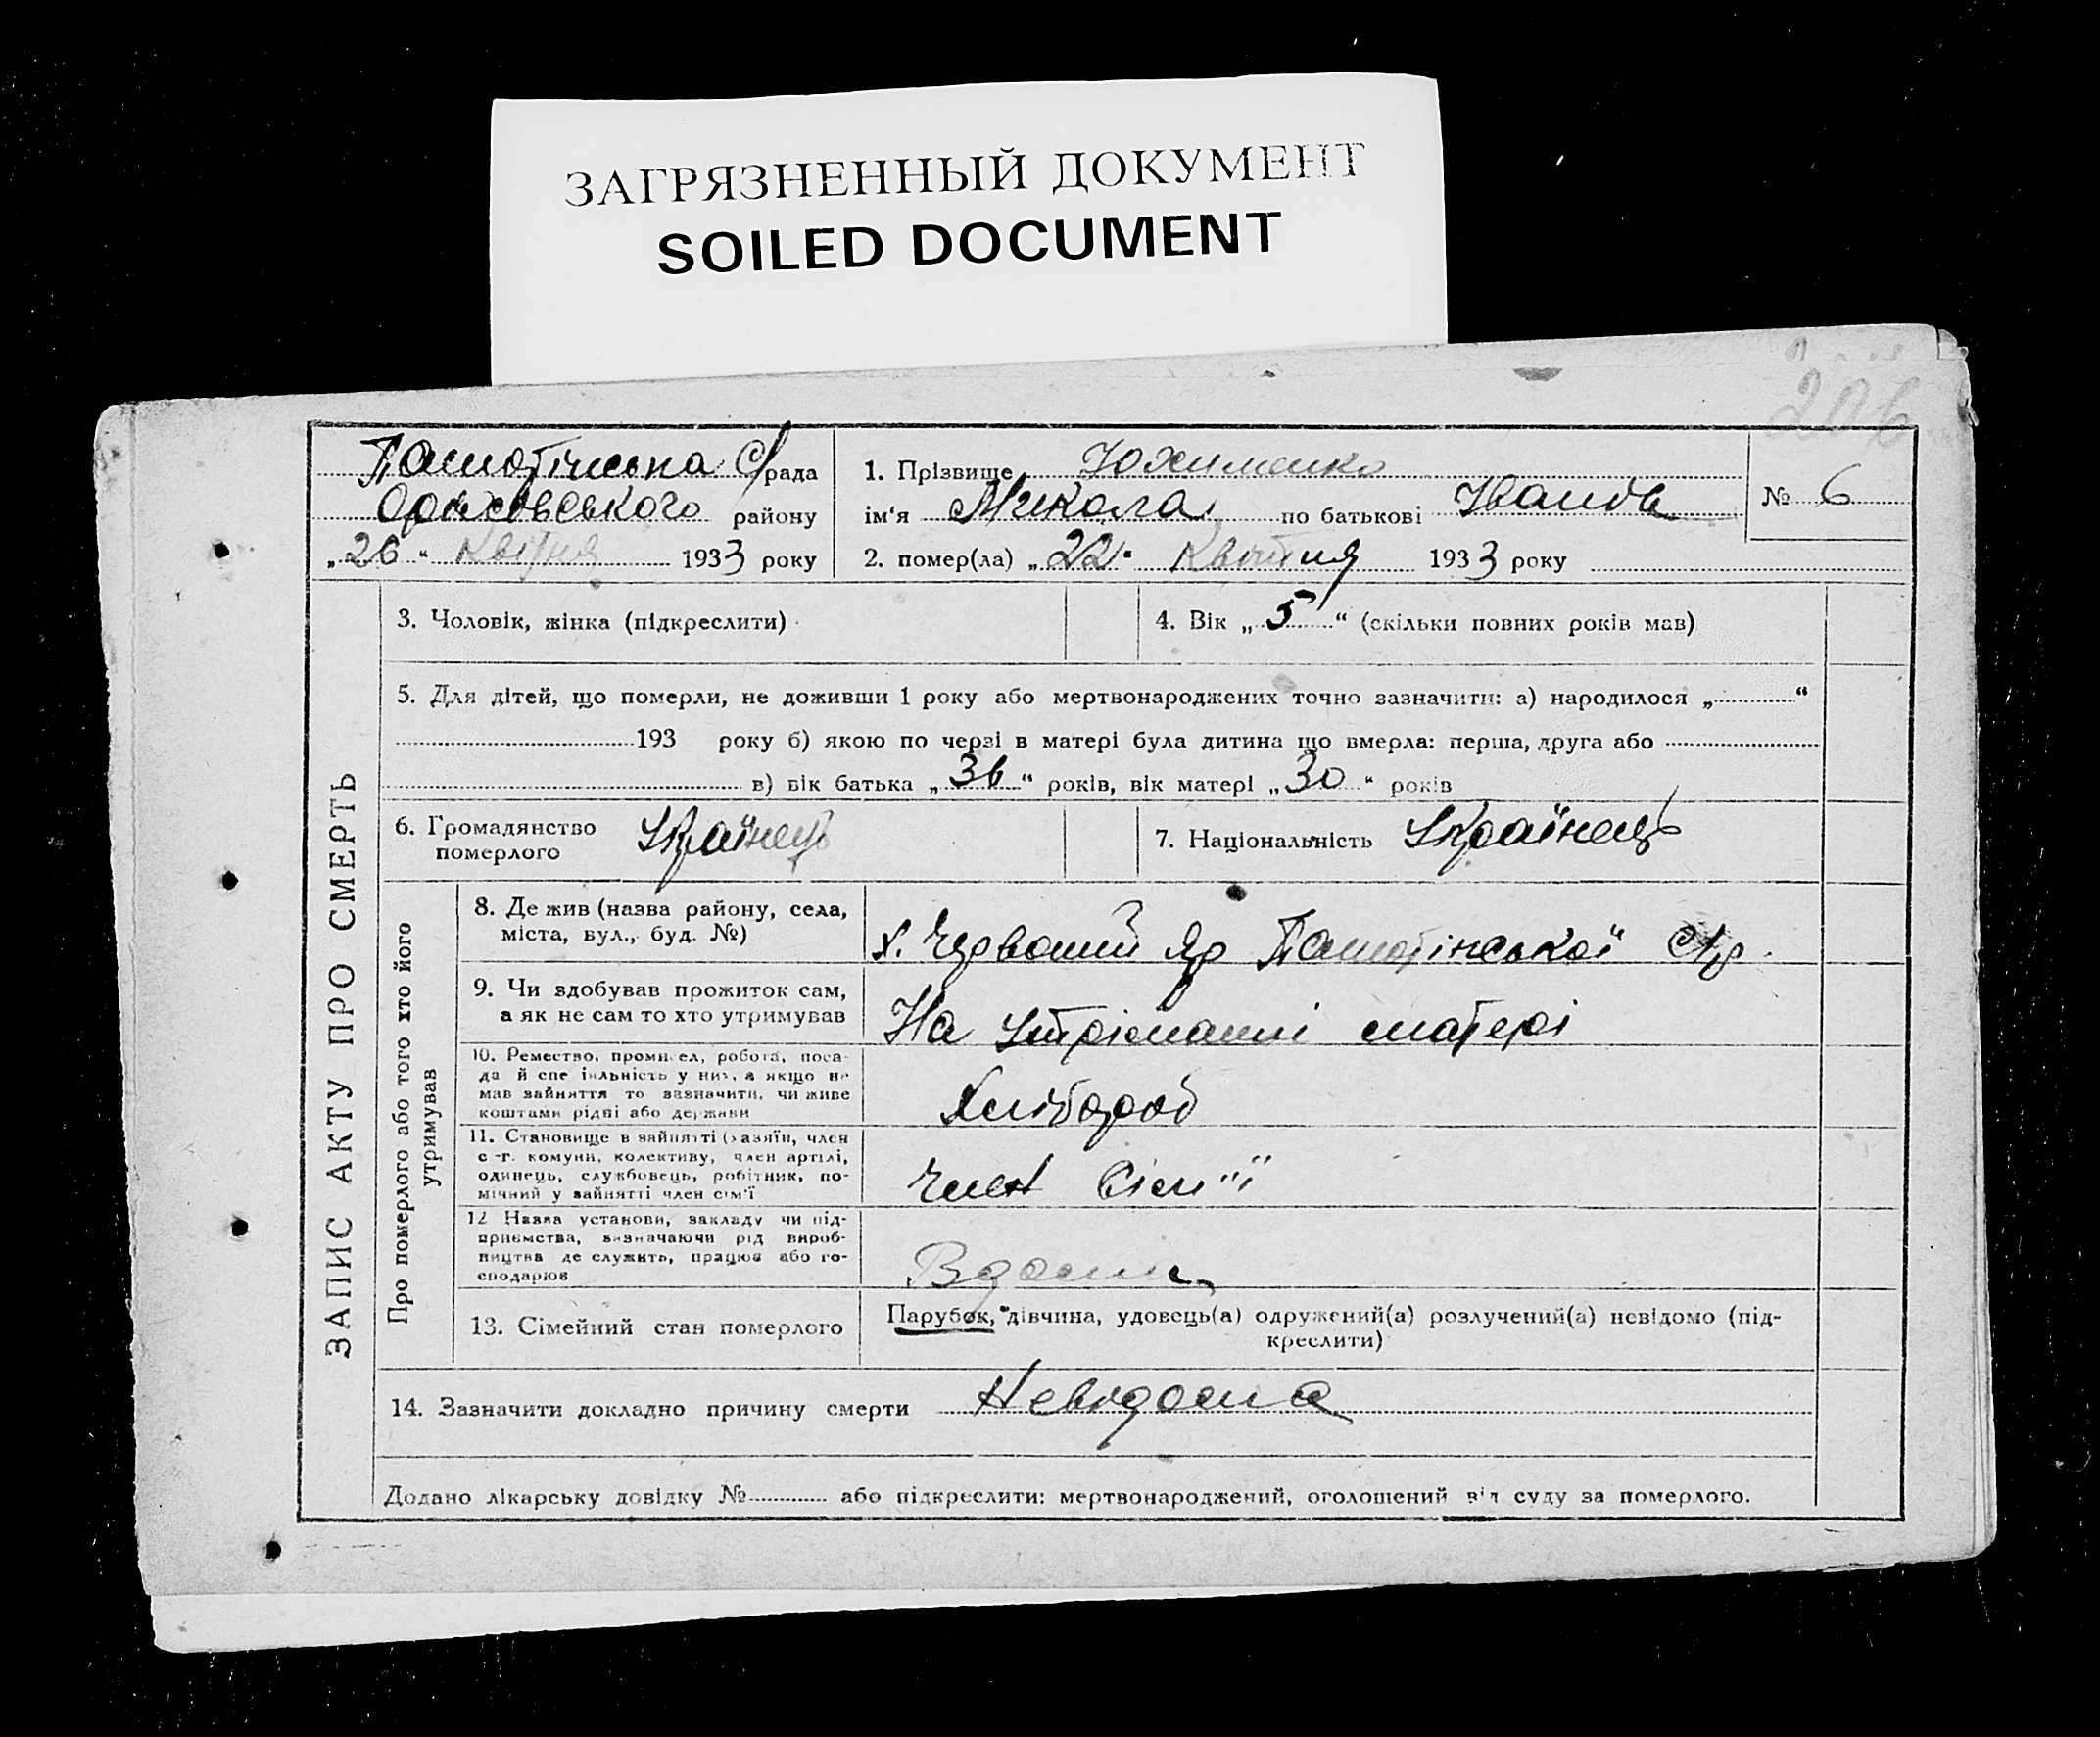 ЗАГРЯЗНЕННЫЙ ДОКУМЕНТ
SOILED DOCUMENT
206
рада
району
„26“ Квітня 1933 року
1. Прізвище Юхименко
ім‘я Микола по батькові Іванов
№ 6
2. помер(ла) „22“ Квітня 1933 року
3. Чоловік, жінка (підкреслити)
4. Вік „5“ (скільки повних років мав)
5. Для дітей, що померли, не доживши 1 року або мертвонароджених точно зазначити: а) народилося „ “
193 року б) якою по черзі в матері була дитина що вмерла: перша, друга або
в) вік батька „36“ років, вік матері „30“ років
6. Громадянство
померлого
Українець
7. Національність Українець
ЗАПИС АКТУ ПРО СМЕРТЬ
Про померлого або того хто його
утримував
8. Де жив (назва району, села,
міста, вул., буд. №)
х. Червоний Яр
9. Чи здобував прожиток сам,
а як не сам то хто утримував
На утріманні матері
10. Ремество, промисел, робота, поса-
да й спеціяльність у них, а якщо не
мав зайняття то зазначити, чи живе
коштами рідні або держави
Хлібороб
11. Становище в зайнятті (хазяїн, член
с.-г. комуни, колективу, член артілі,
одинець, службовець, робітник, по-
мічний у зайнятті член сім‘ї
Член сім"ї
12 Назва установи, закладу чи під-
приємства, зазначаючи рід вироб-
ництва де служить, працює або го-
сподарює
Вдома
13. Сімейний стан померлого
Парубок, дівчина, удовець(а) одружений(а) розлучений(а) невідомо (під-
креслити)
14. Зазначити докладно причину смерти Невідома
Додано лікарську довідку № або підкреслити: мертвонароджений, оголошений від суду за померлого.